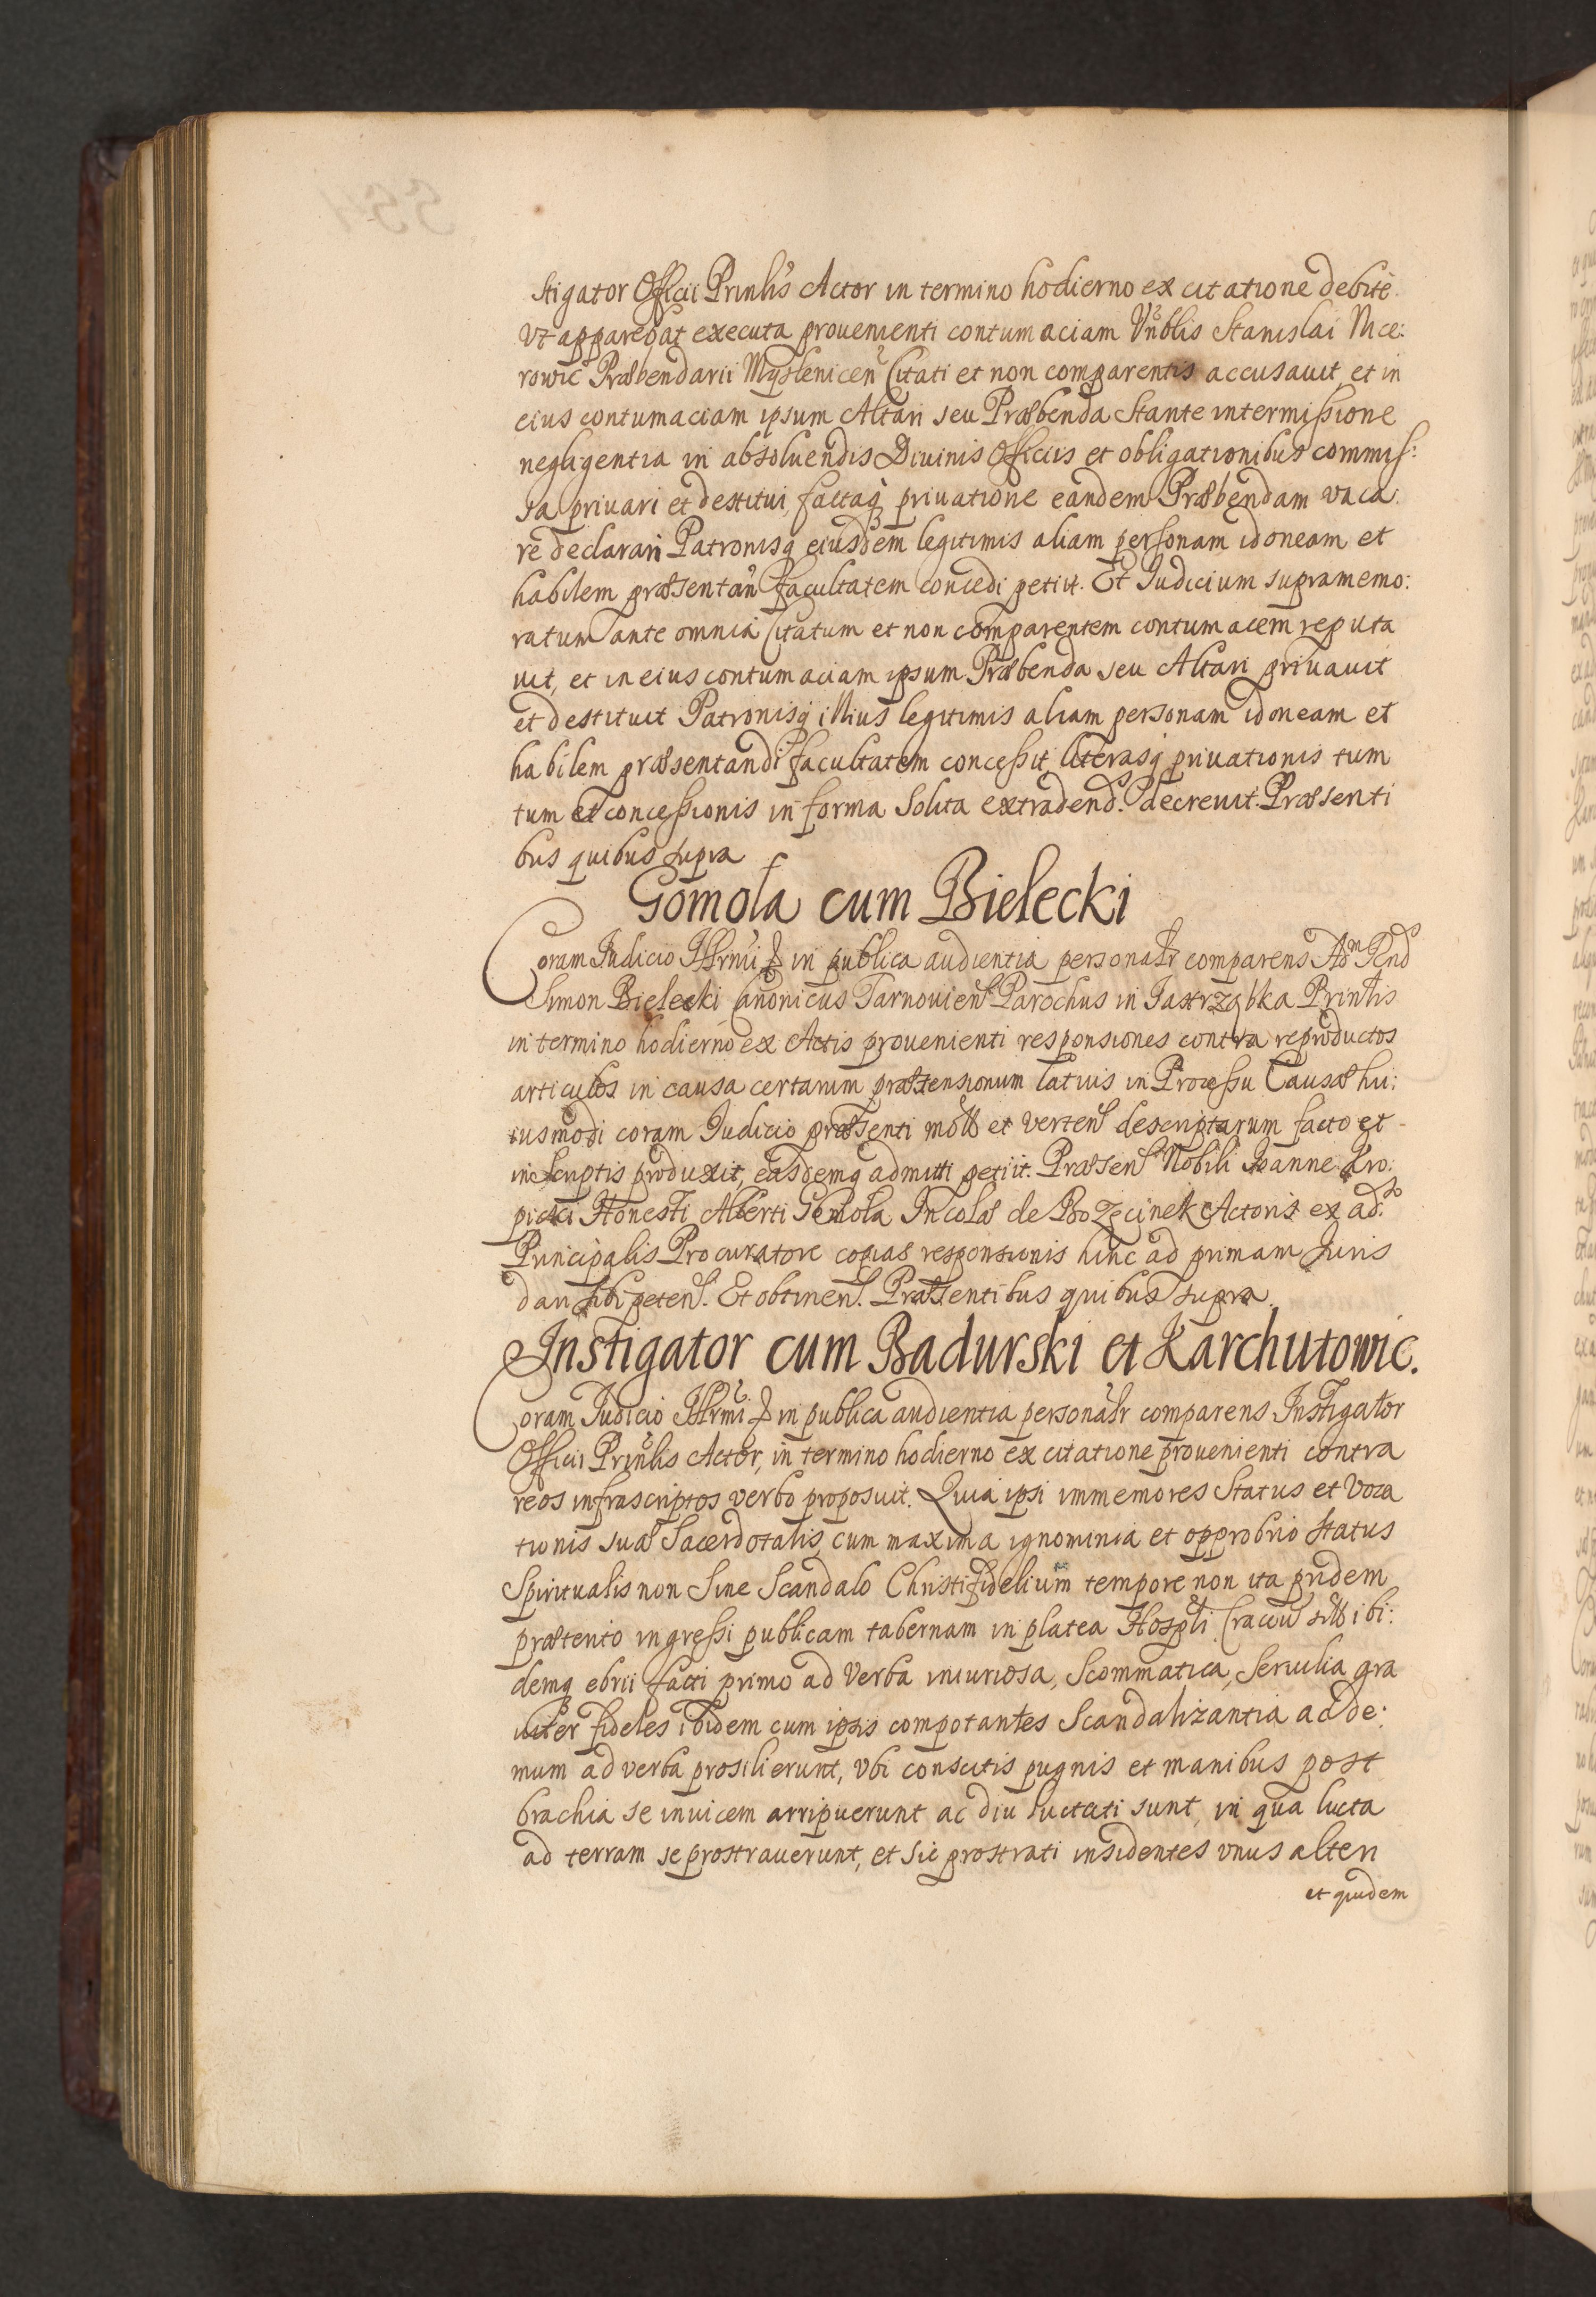 stigator Officii Prinlis Actor in termino hodierno ex citatione debite
Vt apparebat executa prouenienti contumaciam Vnblis Stanislai Mce:
rowic Præbendarii Myslenicen Citati et non comparentis accusauit, et in
eius contumaciam ipsum Altari seu Præbenda Stante intermissione
negligentia in absoluendis Diuinis Officiis et obligationibus commis:
sa priuari et destitui, factaq priuatione eandem Præbendam vaca:
re declarari Patronisq eiusdem legitimis aliam personam idoneam et
habilem præsentan facultatem concedi petiit. Et Judicium supramemo:
ratum ante omnia Citatum et non comparentem contumacem reputa
uit, et in eius contumaciam ipsum Præbenda seu Altari priuauit
et destituit Patronisq illius legitimis aliam personam idoneam et
habilem præsentandi facultatem concessit, literasq priuationis tum
tum et concessionis in forma Solita extradend. decreuit. Præsenti
bus quibus supra
Gomoła cum Bielecki
Coram Judicio Illrmi in publica audientia personalr comparens Adm Rnd
Simon Bielecki Canonicus Tarnouien Parochus in Jastrząbka Prinlis
in termino hodierno ex Actis prouenienti responsiones contra reproductos
articulos in causa certarum prætensionum latius in Processu Causæ hu:
iusmodi coram Judicio præsenti mott et verten descriptarum facto et
in scriptis produxit, easdemq admitti petiit. Præsen Nobili Joanne Kro:
picki Honesti Alberti Gomola Incolæ de Bozęcinek Actoris ex ads
Principalis Procuratore copias responsionis hinc ad primam Juris
dari sibi peten. Et obtinen. Præsentibus quibus supra.
Instigator cum Badurski et Karchutowic.
Coram Judicio Illrmi in publica audientia personalr comparens Instigator
Officii Prinlis Actor, in termino hodierno ex citatione prouenienti contra
reos infrascriptos verbo proposuit. Quia ipsi immemores Status et Voca
tionis suæ Sacerdotalis, cum maxima ignominia et opprobrio status
Spiritualis non Sine Scandalo Christifidelium tempore non ita pridem
prætento ingressi publicam tabernam in platea Hospitli Cracou sitt ibi:
demq ebrii facti primo ad Verba iniuriosa, Scommatica, Seruilia gra
uiter fideles ibidem cum ipsis compotantes Scandalizantia ac de:
mum ad verba prosilierunt, Vbi conscitis pugnis et manibus post
brachia se inuicem arripuerunt ac diu luctati sunt, in qua lucta
ad terram se prostrauerunt, et sic prostrati insidentes vnus alteri
et quidem